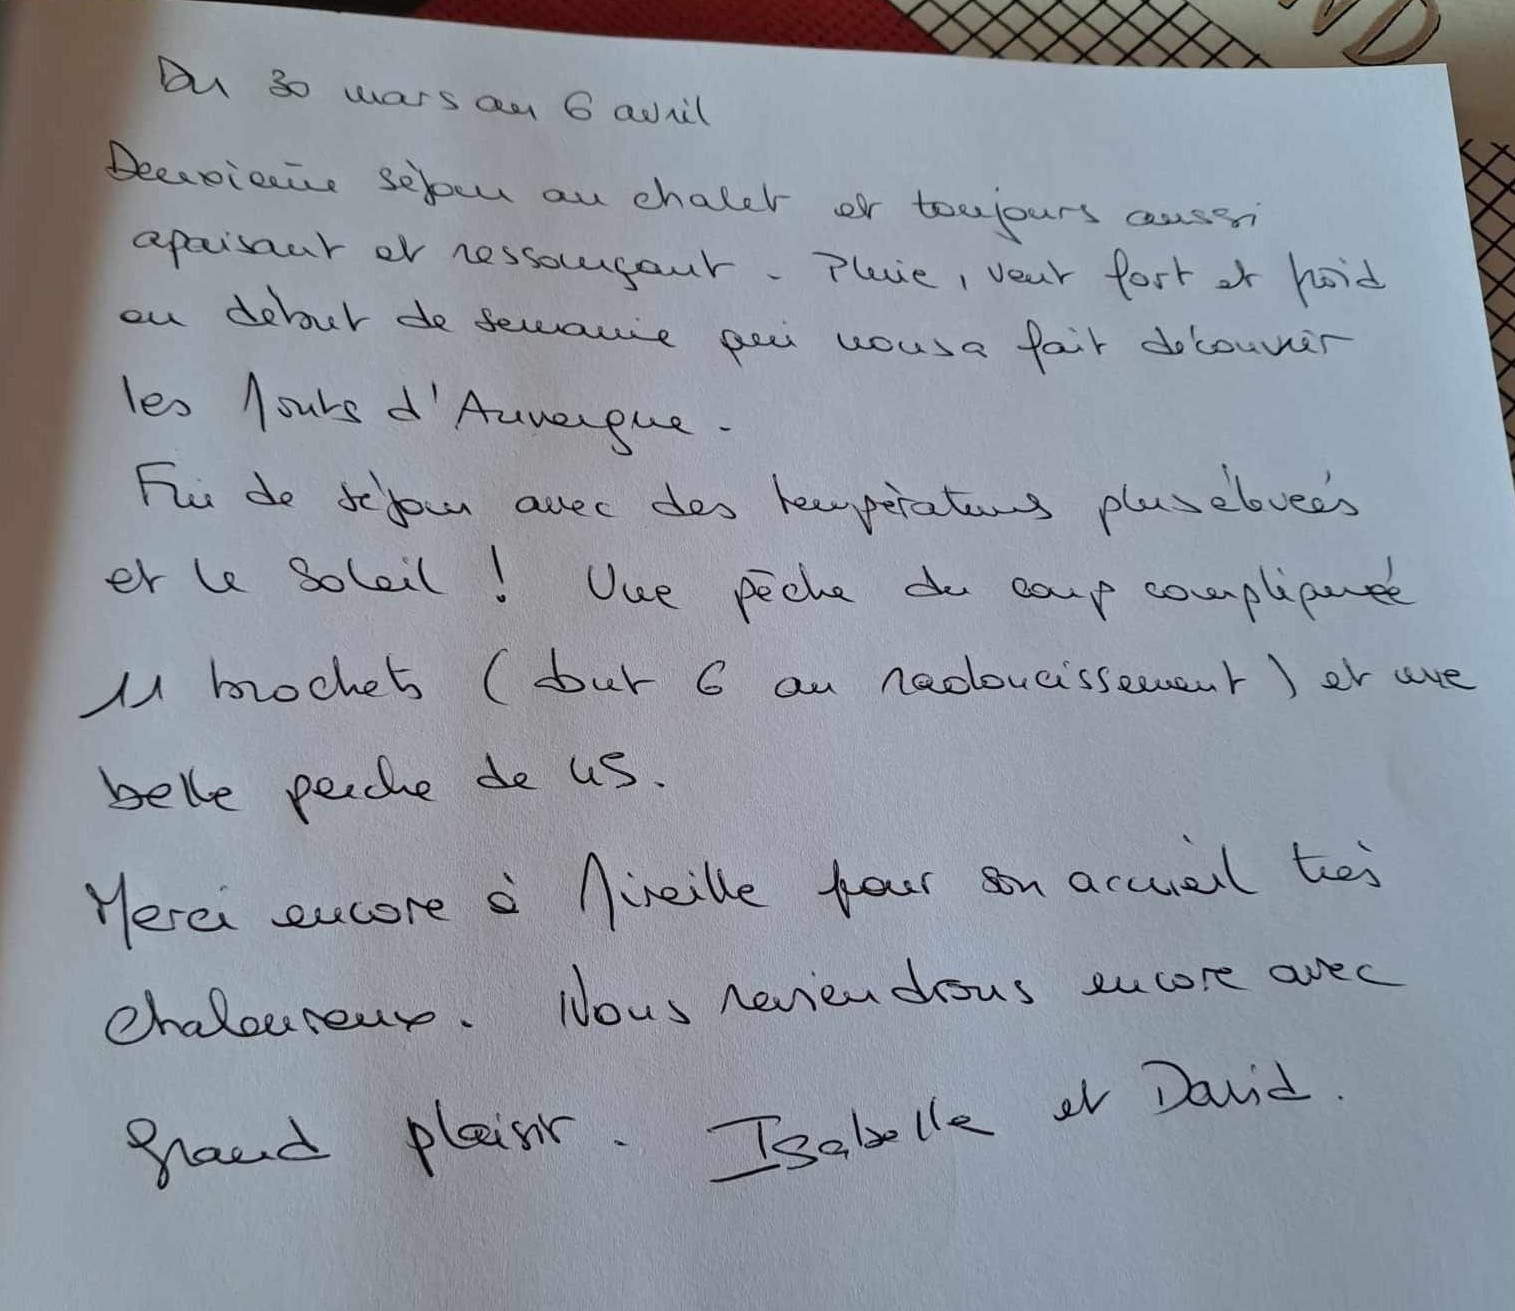 ND
Du 30 mars au 6 avril
Deuxième séjour au chalet et toujours aussi
apaisant et ressourçant. Pluie, vent fort et froid
en début de semaine qui nous a fait découvrir
les Monts d'Auvergne.
Fin de séjour avec des températures plus élevées
et le soleil ! Une pêche du coup compliquée
11 brochets (dont 6 au radoucissement) et une
belle perche de 45.
Merci encore à Mireille pour son accueil très
chaleureux. Nous reviendrons encore avec
grand plaisir. Isabelle et David.